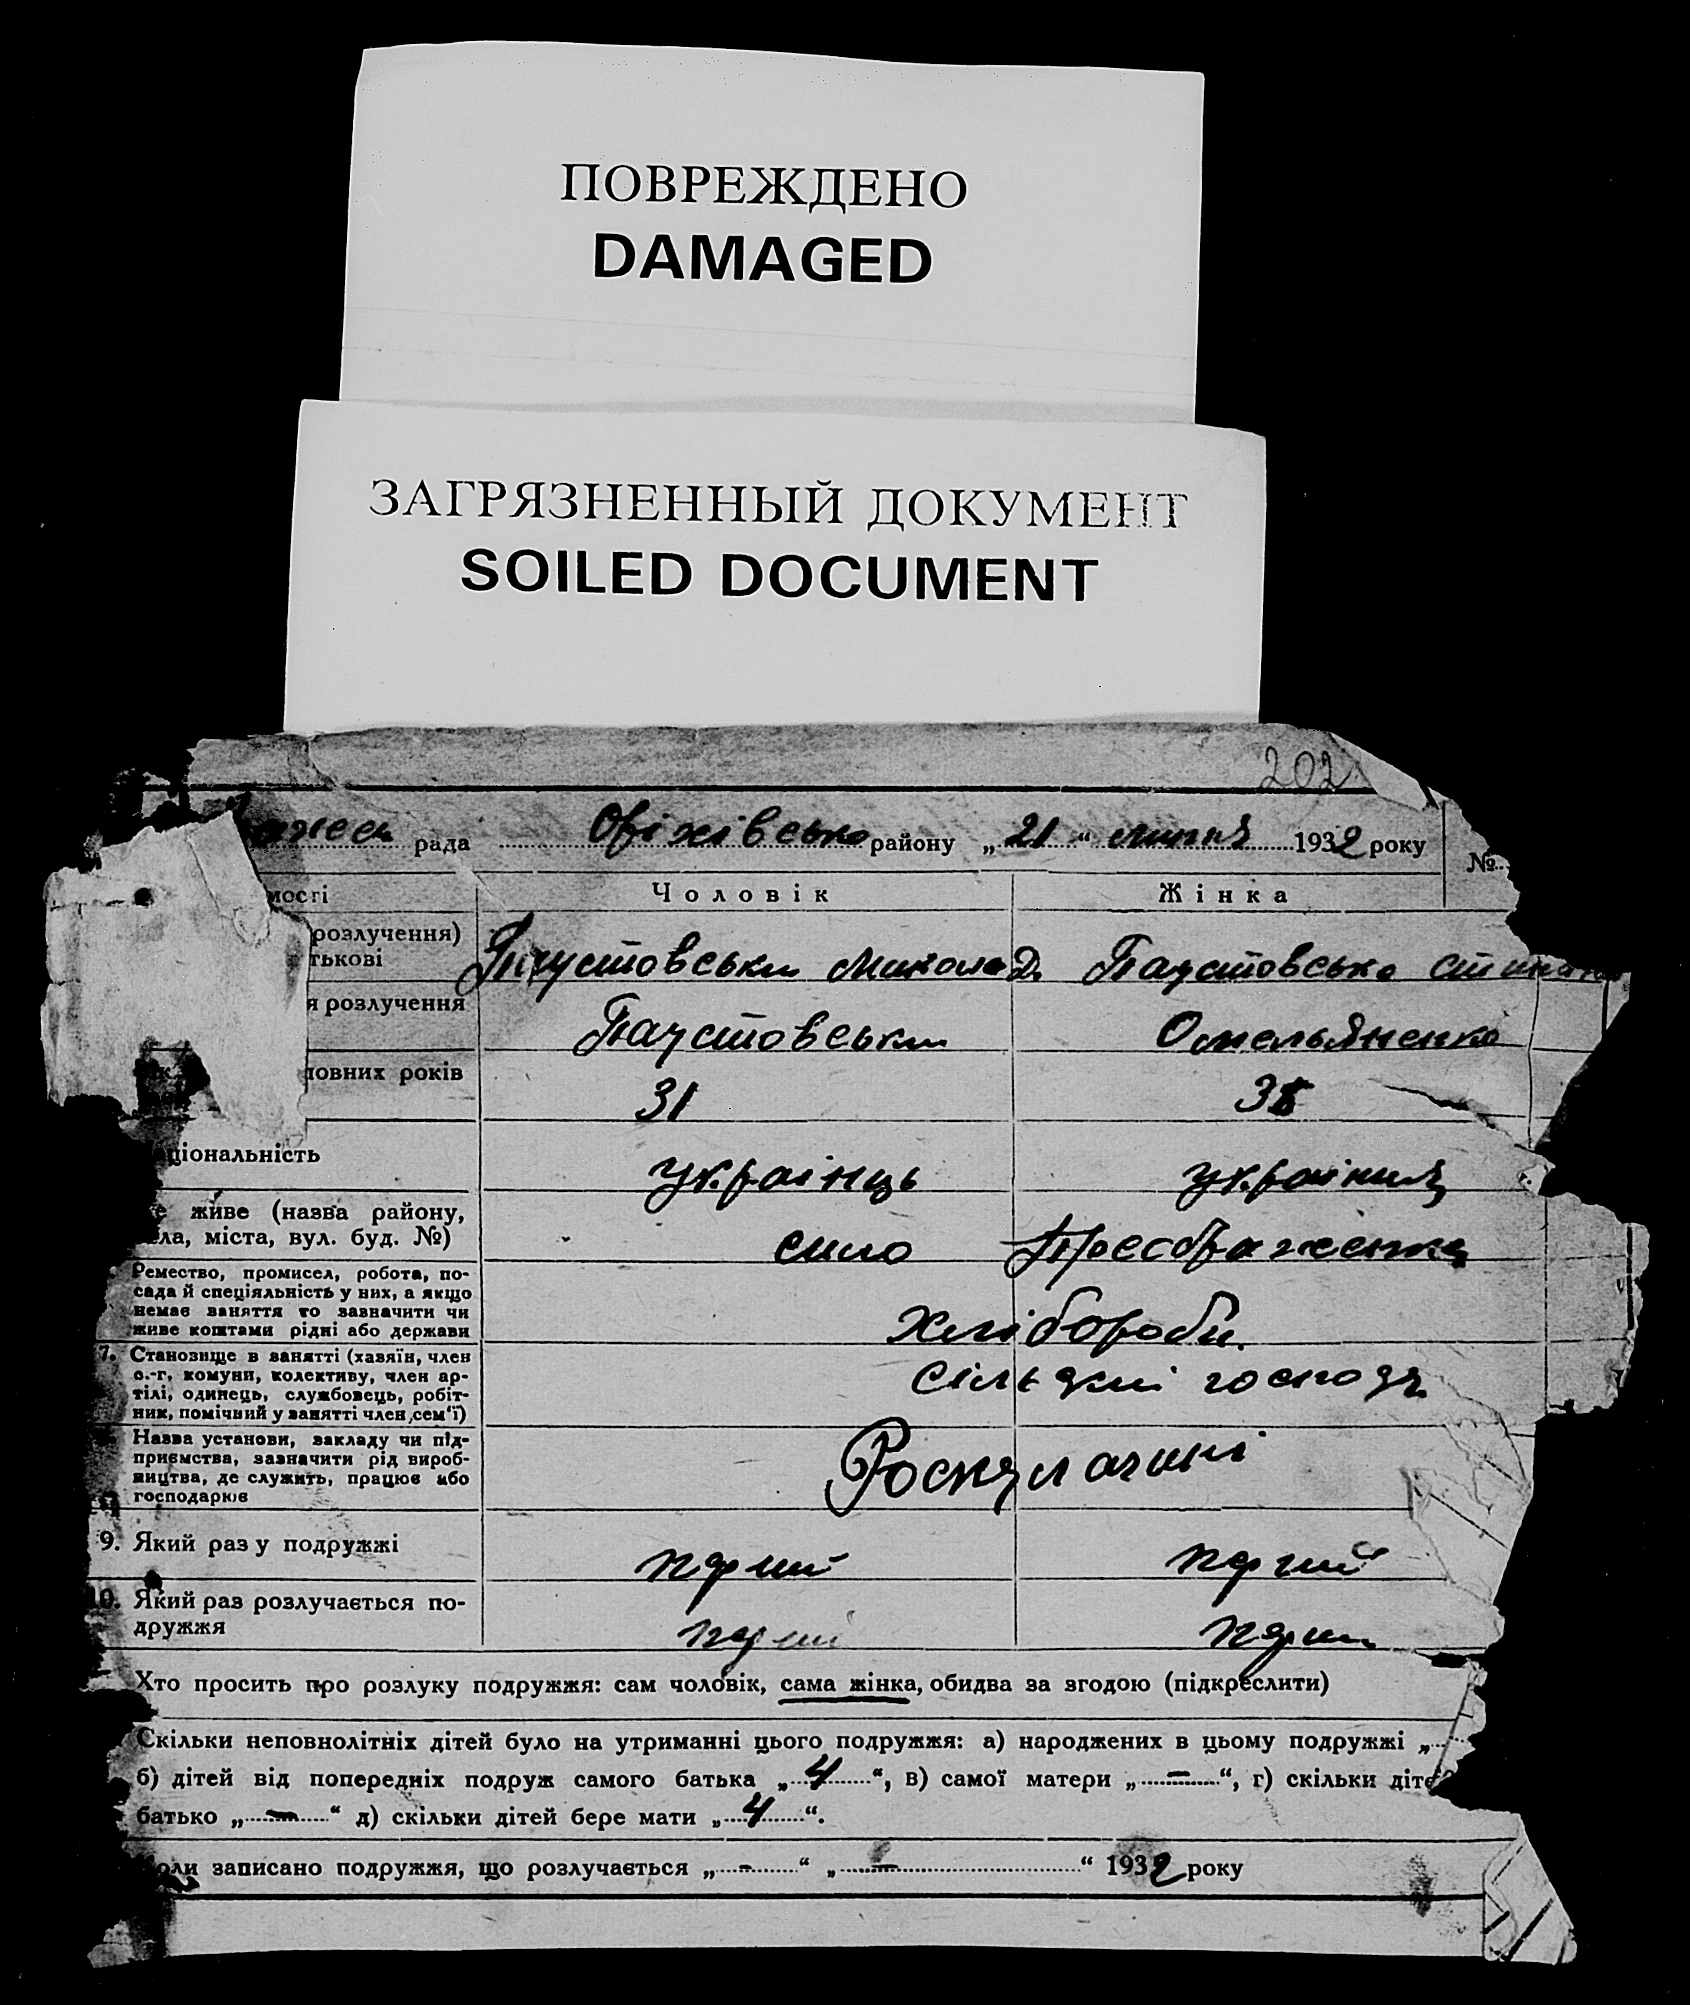 ПОВРЕЖДЕНО
DAMAGED
ЗАГРЯЗНЕННЫЙ ДОКУМЕНТ
SOILED DOCUMENT
202
рада Оріхівсько району „ 21 “ липня 1932 року №
мості Чоловік Жінка
розлучення)
тькові Паустовськи Микола Д. Паустовсько
я розлучення Паустовськи Омельяненко
повних років 31 38
ціональність українць україниця
живе (назва району,
ла, міста, вул. буд. №) село Преображенка
Ремество, промисел, робота, по-
сада й спеціяльність у них, а якщо
немає заняття то зазначити чи
живе коштами рідні або держави хлібороби
7. Становище в занятті (хазяїн, член
с.-г. комуни, колективу, член ар-
тілі, одинець, службовець, робіт-
ник, помічний у занятті член сем'ї) господ
Назва установи, закладу чи під-
приємства, зазначити рід вироб-
ництва, де служить, працює або
господарює Роскулачині
9. Який раз у подружжі перший перший
10. Який раз розлучається по-
дружжя перші перши
Хто просить про розлуку подружжя: сам чоловік, сама жінка, обидва за згодою (підкреслити)
Скільки неповнолітніх дітей було на утриманні цього подружжя: а) народжених в цьому подружжі „
б) дітей від попередніх подруж самого батька „ 4 “, в) самої матери „ – “, г) скільки діте
батько „ – “ д) скільки дітей бере мати „ 4 “.
оли записано подружжя, що розлучається „ – “ „ – “ 1932 року